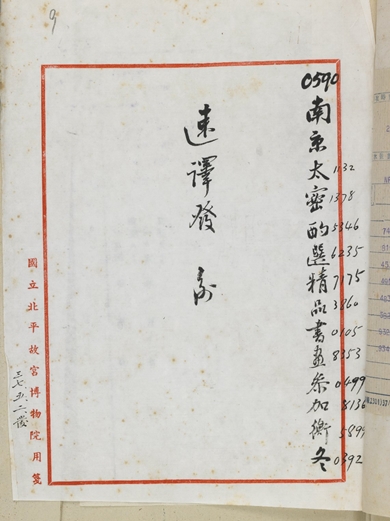 9
0590
南京太密酌選精品書畫參加衡冬
1132
1378
5346
6235
7175
3860
0105
8353
0499
8136
5899
0392
速譯發
國立北平故宮博物院用箋
三七五二發